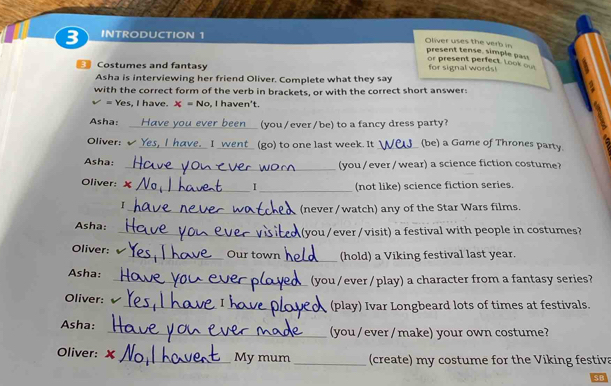 3 INTRODUCTION 1
Oliver uses the verb in
present tense, simple past
or present perfect. Look out
for signal words!
3 Costumes and fantasy
Asha is interviewing her friend Oliver. Complete what they say
with the correct form of the verb in brackets, or with the correct short answer:
✓ = Yes, I have. ✗ = No, I haven't.
Asha: Have you ever been (you/ever/be) to a fancy dress party?
Oliver: ✓ Yes, I have. I went (go) to one last week. It was (be) a Game of Thrones party.
Asha: Have you ever worn (you/ever/wear) a science fiction costume?
Oliver: ✗ No, I havent I (not like) science fiction series.
I have never watched (never/watch) any of the Star Wars films.
Asha: Have you ever visited (you/ever/visit) a festival with people in costumes?
Oliver: ✓ Yes, I have Our town held (hold) a Viking festival last year.
Asha: Have you ever played (you/ever/play) a character from a fantasy series?
Oliver: ✓ Yes, I have I have played (play) Ivar Longbeard lots of times at festivals.
Asha: Have you ever made (you/ever/make) your own costume?
Oliver: ✗ No, I havent My mum (create) my costume for the Viking festiva
SB